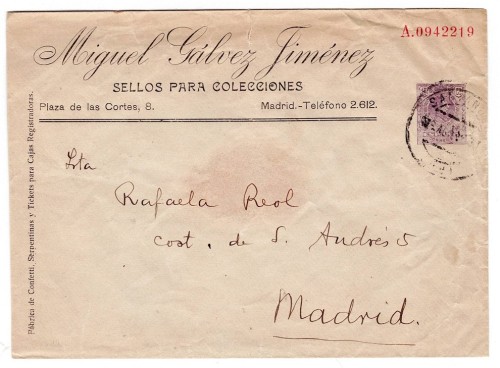 A.0942219
Miguel Gálvez Jiménez
SELLOS PARA COLECCIONES
Plaza de las Cortes, 8. Madrid.-Teléfono 2.612.
Srta
Rafaela Reol
cost. de S. Andrés 5
Madrid.
Fábrica de Confetti, Serpentinas y Tickets para Cajas Registradoras.